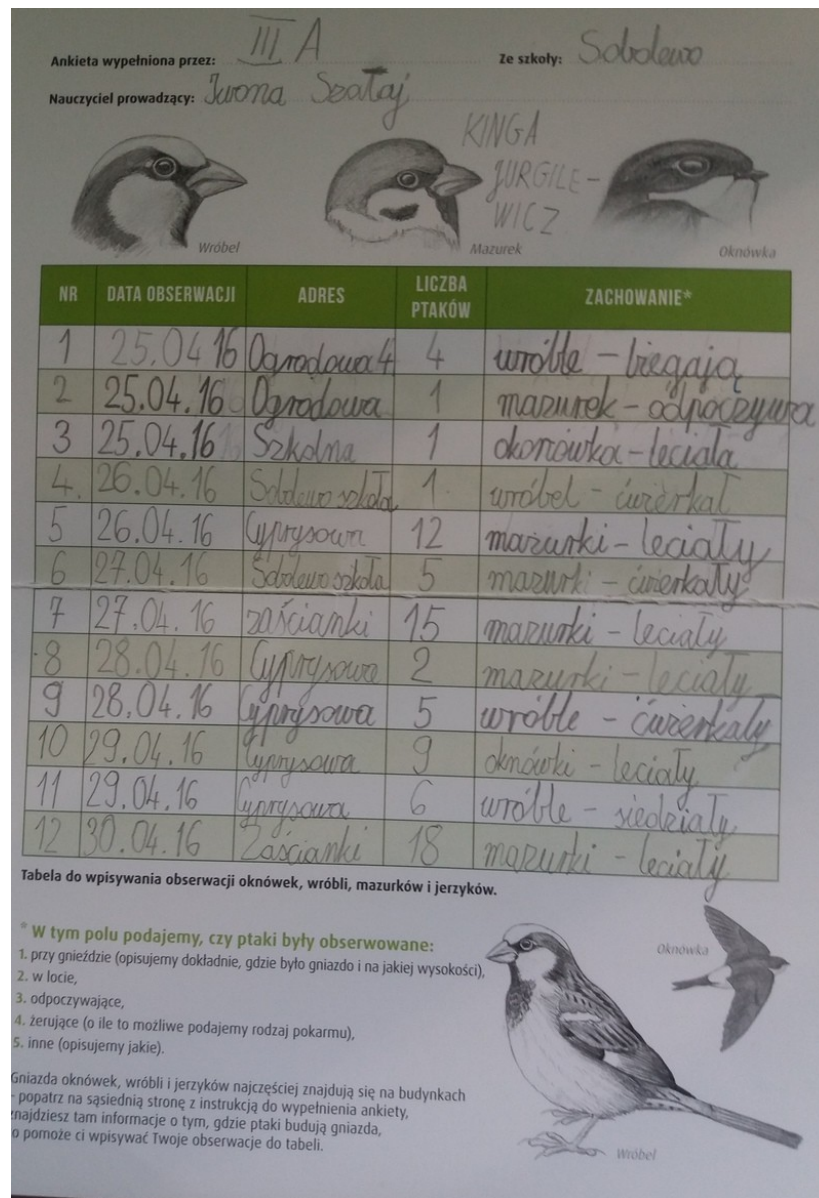 Ankieta wypełniona przez: III A Ze szkoły: Sobolewo
Nauczyciel prowadzący: Iwona Szałaj
KINGA
JURGILE-
WICZ
Wróbel Mazurek Oknówka
NR DATA OBSERWACJI ADRES LICZBA PTAKÓW ZACHOWANIE*
1 25.04 16 Ogrodowa 4 4 wróble - biegają
2 25.04.16 Ogrodowa 1 mazurek - odpoczywa
3 25.04.16 Szkolna 1 okonówka - leciała
4. 26.04.16 Sobolewo szkoła 1. wróbel - ćwierkał
5 26.04.16 Cyprysowa 12 mazurki - leciały
6 27.04.16 Sobolewo szkoła 5 mazurki - ćwierkały
7 27.04.16 zaścianki 15 mazurki - leciały
8 28.04.16 Cyprysowa 2 mazurki - leciały
9 28.04.16 Cyprysowa 5 wróble - ćwierkały
10 29.04.16 Cyprysowa 9 oknówki - leciały
11 29.04.16 Cyprysowa 6 wróble - siedziały
12 30.04.16 Zaścianki 18 mazurki - leciały
Tabela do wpisywania obserwacji oknówek, wróbli, mazurków i jerzyków.
* W tym polu podajemy, czy ptaki były obserwowane:
1. przy gnieździe (opisujemy dokładnie, gdzie było gniazdo i na jakiej wysokości),
2. w locie,
3. odpoczywające,
4. żerujące (o ile to możliwe podajemy rodzaj pokarmu),
5. inne (opisujemy jakie).
Oknówka
Gniazda oknówek, wróbli i jerzyków najczęściej znajdują się na budynkach
- popatrz na sąsiednią stronę z instrukcją do wypełnienia ankiety,
znajdziesz tam informacje o tym, gdzie ptaki budują gniazda,
o pomoże ci wpisywać Twoje obserwacje do tabeli.
Wróbel